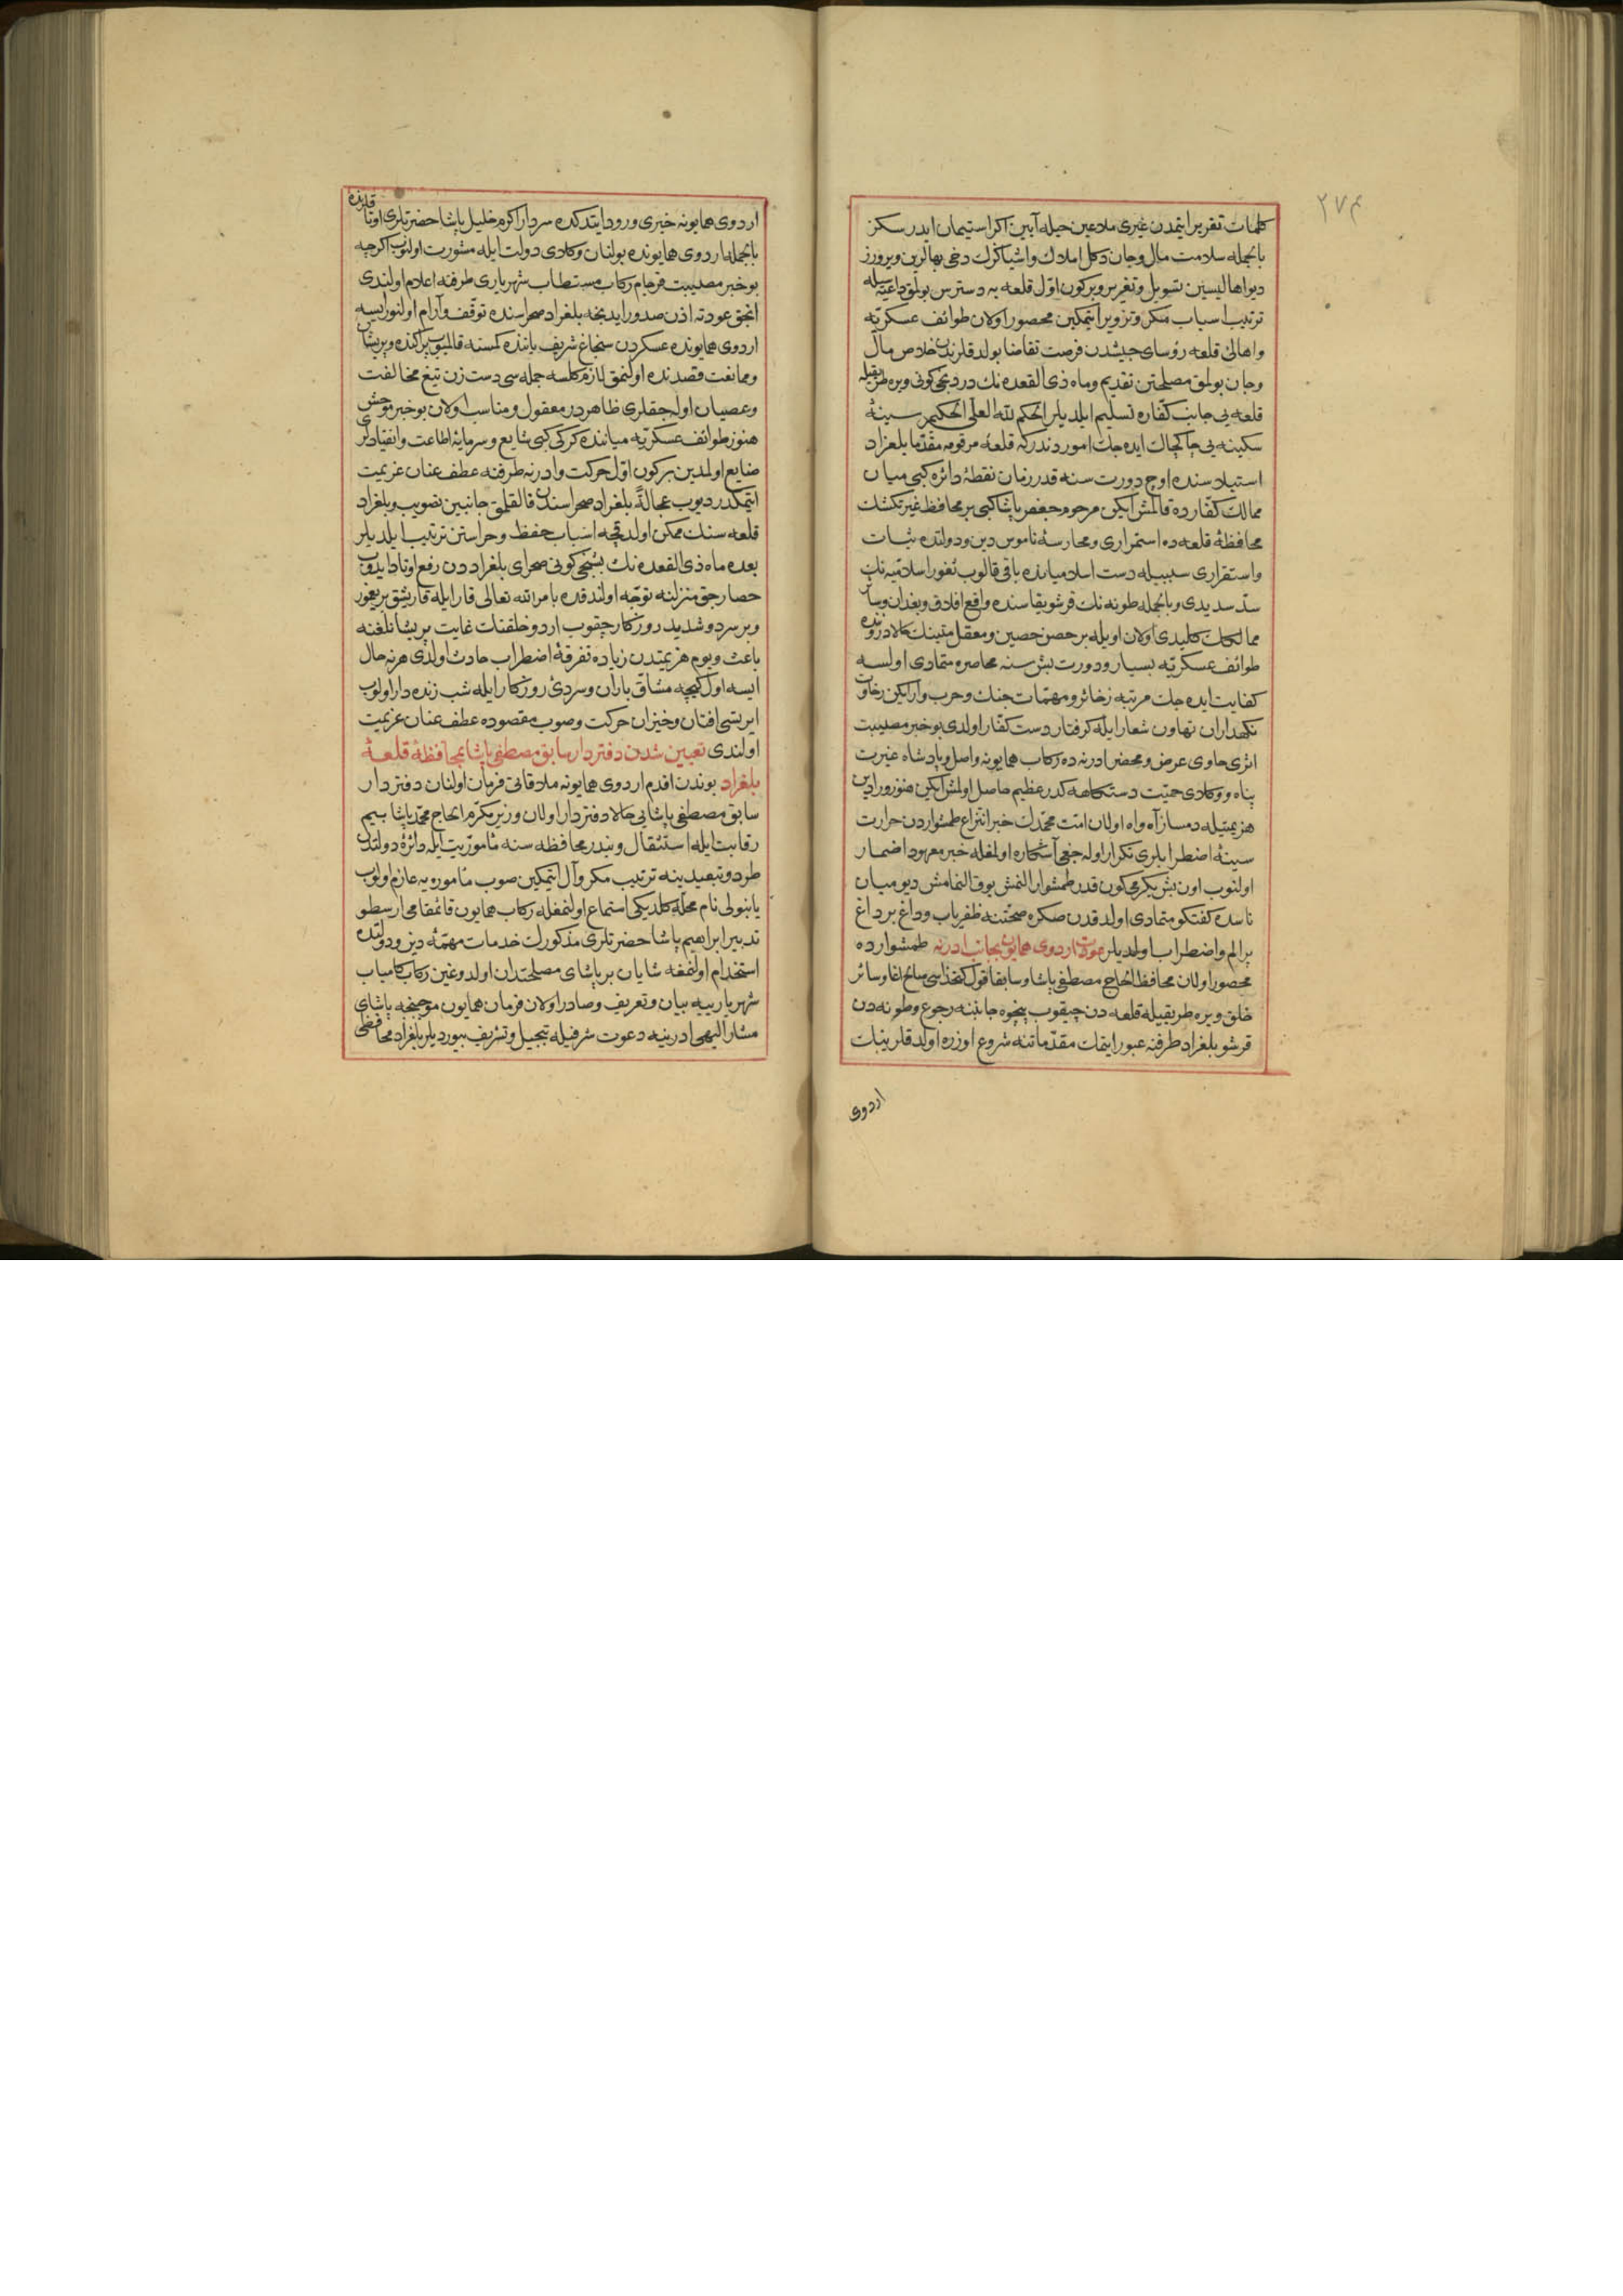 ٢٧٤
كلمات تقرير ايتمدن غيرى ملاعين حيله آيين اكر استيمان ايدرسكز
بالجمله سلامت مال وجان دكل املاك واشياكزك دخى بهالرين ويررز
ديو اهاليسين تسويل وتغرير وبركون اوّل قلعه يه دسترس بولمق داعيه سيله
ترتيب اسباب مكر وتزوير ايتمكين محصور اولان طوائف عسكريّه
واهالئ قلعه رؤساى جيشدن فرصت تقاضا بولدقلرندن خلاص مال
وجان بولمق مصلحتن تقديم وماه ذى القعده نك دردنجى كونى ويره طريقيله
قلعه يى جانب كفّاره تسليم ايلديلر الحكم لله العلىّ الحكيم سينۀ
سكينه يى چاكچاك ايده جك اموردندركه قلعۀ مرقومه مقدّما بلغراد
استيلاسنده اوچ دورت سنه قدر زمان نقطۀ دائره كبى ميان
ممالك كفّارده قالمش ايكن مرحوم جعفر پاشا كبى بر محافظ غيرتكشك
محافظۀ قلعه ده استمرارى ومحارسۀ ناموس دين ودولتده ثبات
واستقرارى سببيله دست اسلاميانده باقى قالوب ثغور اسلاميّه نك
سدّ سديدى وبالجمله طونه نك قرشو يقاسنده واقع افلاق وبغدان وسائر
ممالكك كليدى اولان اويله بر حصن حصين ومعقل متينك حالا درونده
طوائف عسكريّه بسيار ودورت بش سنه محاصره متمادى اولسه
كفايت ايده جك مرتبه زخائر ومهمّات جنك وحرب وار ايكن رخاوت
نكهداران تهاون شعار ايله كرفتار دست كفّار اولدى بو خبر مصيبت
اثرى حاوى عرض ومحضر ادرنه ده ركاب همايونه واصل وپادشاه غيرت
پناه ووكلاى حميّت دستكاهه كدر عظيم حاصل اولمش ايكن هنوز ورادين
هزيمتيله دمساز آه واه اولان امّت محمّدك خبر انتزاع طمشواردن حرارت
سينۀ اضطرابلرى تكرار اوله جغى آشكاره اولمغله خبر معهود اضمار
اولنوب اون بش يكرمى كون قدر طمشوار النمش يوق النمامش ديو ميان
ناسده كفتكو متمادى اولدقدن صكره صحّتنه ظفرياب وداغ بر داغ
پر الم واضطراب اولديلر عودت اردوى همايون بجانب ادرنه طمشوارده
محصور اولان محافظ الحاج مصطفى پاشا وسابقا قول كتخداسى صالح اغا وسائر
خلق ويره طريقيله قلعه دن چيقوب پنچوه جانبنه رجوع وطونه دن
قرشو بلغراد طرفنه عبور ايتمك مقدّماتنه شروع اوزره اولدقلرينك
اردوى
اردوى همايونه خبرى ورود ايتدكده سردار اكرم خليل پاشا حضرتلرى اوتاقلرنده
بالجمله اردوى همايونده بولنان وكلاى دولت ايله مشورت اولنوب اكرچه
بو خبر مصيبت فرجام ركاب مستطاب شهريارى طرفنه اعلام اولندى
انجق عودته اذن صدور ايدنجه بلغراد صحراسنده توقّف وآرام اولنورايسه
اردوى همايونده عسكردن سنجاغ شريف ياننده كمسنه قالميوب پراكنده وپريشان
وممانعت قصدنده اولنمق لازم كلسه جمله سى دست زن تيغ مخالفت
وعصيان اوله جقلرى ظاهردر معقول ومناسب اولان بو خبر موحش
هنوز طوائف عسكريّه مياننده كركى كبى شايع وسرمايۀ اطاعت وانقيادلرى
ضايع اولمدين بركون اوّل حركت وادرنه طرفنه عطف عنان عزيمت
ايتمكدر ديوب عجالةً بلغراد صحراسندن قالقلمق جانبين تصويب وبلغراد
قلعه سنك ممكن اولدقجه اسباب حفظ وحراستن ترتيب ايلديلر
بعده ماه ذى القعده نك بشنجى كونى صحراى بلغراددن رفع اوتاد ايدوب
حصارجق منزلنه توجّه اولندقده بامر الله تعالى قار ايله قاريشق بر يغمور
وبر سرد وشديد روزكار چقوب اردو خلقنك غايت پريشانلغنه
باعث ويوم هزيمتدن زياده تفرقۀ اضطراب حادث اولدى هرنه حال
ايسه اول كيجه مشاقّ باران وسردئ روزكار ايله شب زنده دار اولوب
ايرتسى افتان وخيزان حركت وصوب مقصوده عطف عنان عزيمت
اولندى تعيين شدن دفتردار سابق مصطفى پاشا بمحافظۀ قلعۀ
بلغراد بوندن اقدم اردوى همايونه ملاقاتى فرمان اولنان دفتردار
سابق مصطفى پاشايى حالا دفتردار اولان وزير مكرّم الحاج محمّد پاشا بيم
رقابت ايله استثقال وبندر محافظه سنه مأموريّت ايله دائرۀ دولتدن
طرد وتبعيدينه ترتيب مكر وآل ايتمكين صوب مأموره يه عازم اولوب
يانبولى نام محلّه كلديكى استماع اولنمغله ركاب همايون قائمقامى ارسطو
تدبير ابراهيم پاشا حضرتلرى مذكورك خدمات مهمّۀ دين ودولتده
استخدام اولنمغه شايان بر پاشاى مصلحتدان اولدوغين ركاب كامياب
شهريارييه بيان وتعريف وصادر اولان فرمان همايون موجبنجه پاشاى
مشار اليهى ادرنيه دعوت شرفيله تبجيل وتشريف بيورديلر بلغراد محافظى